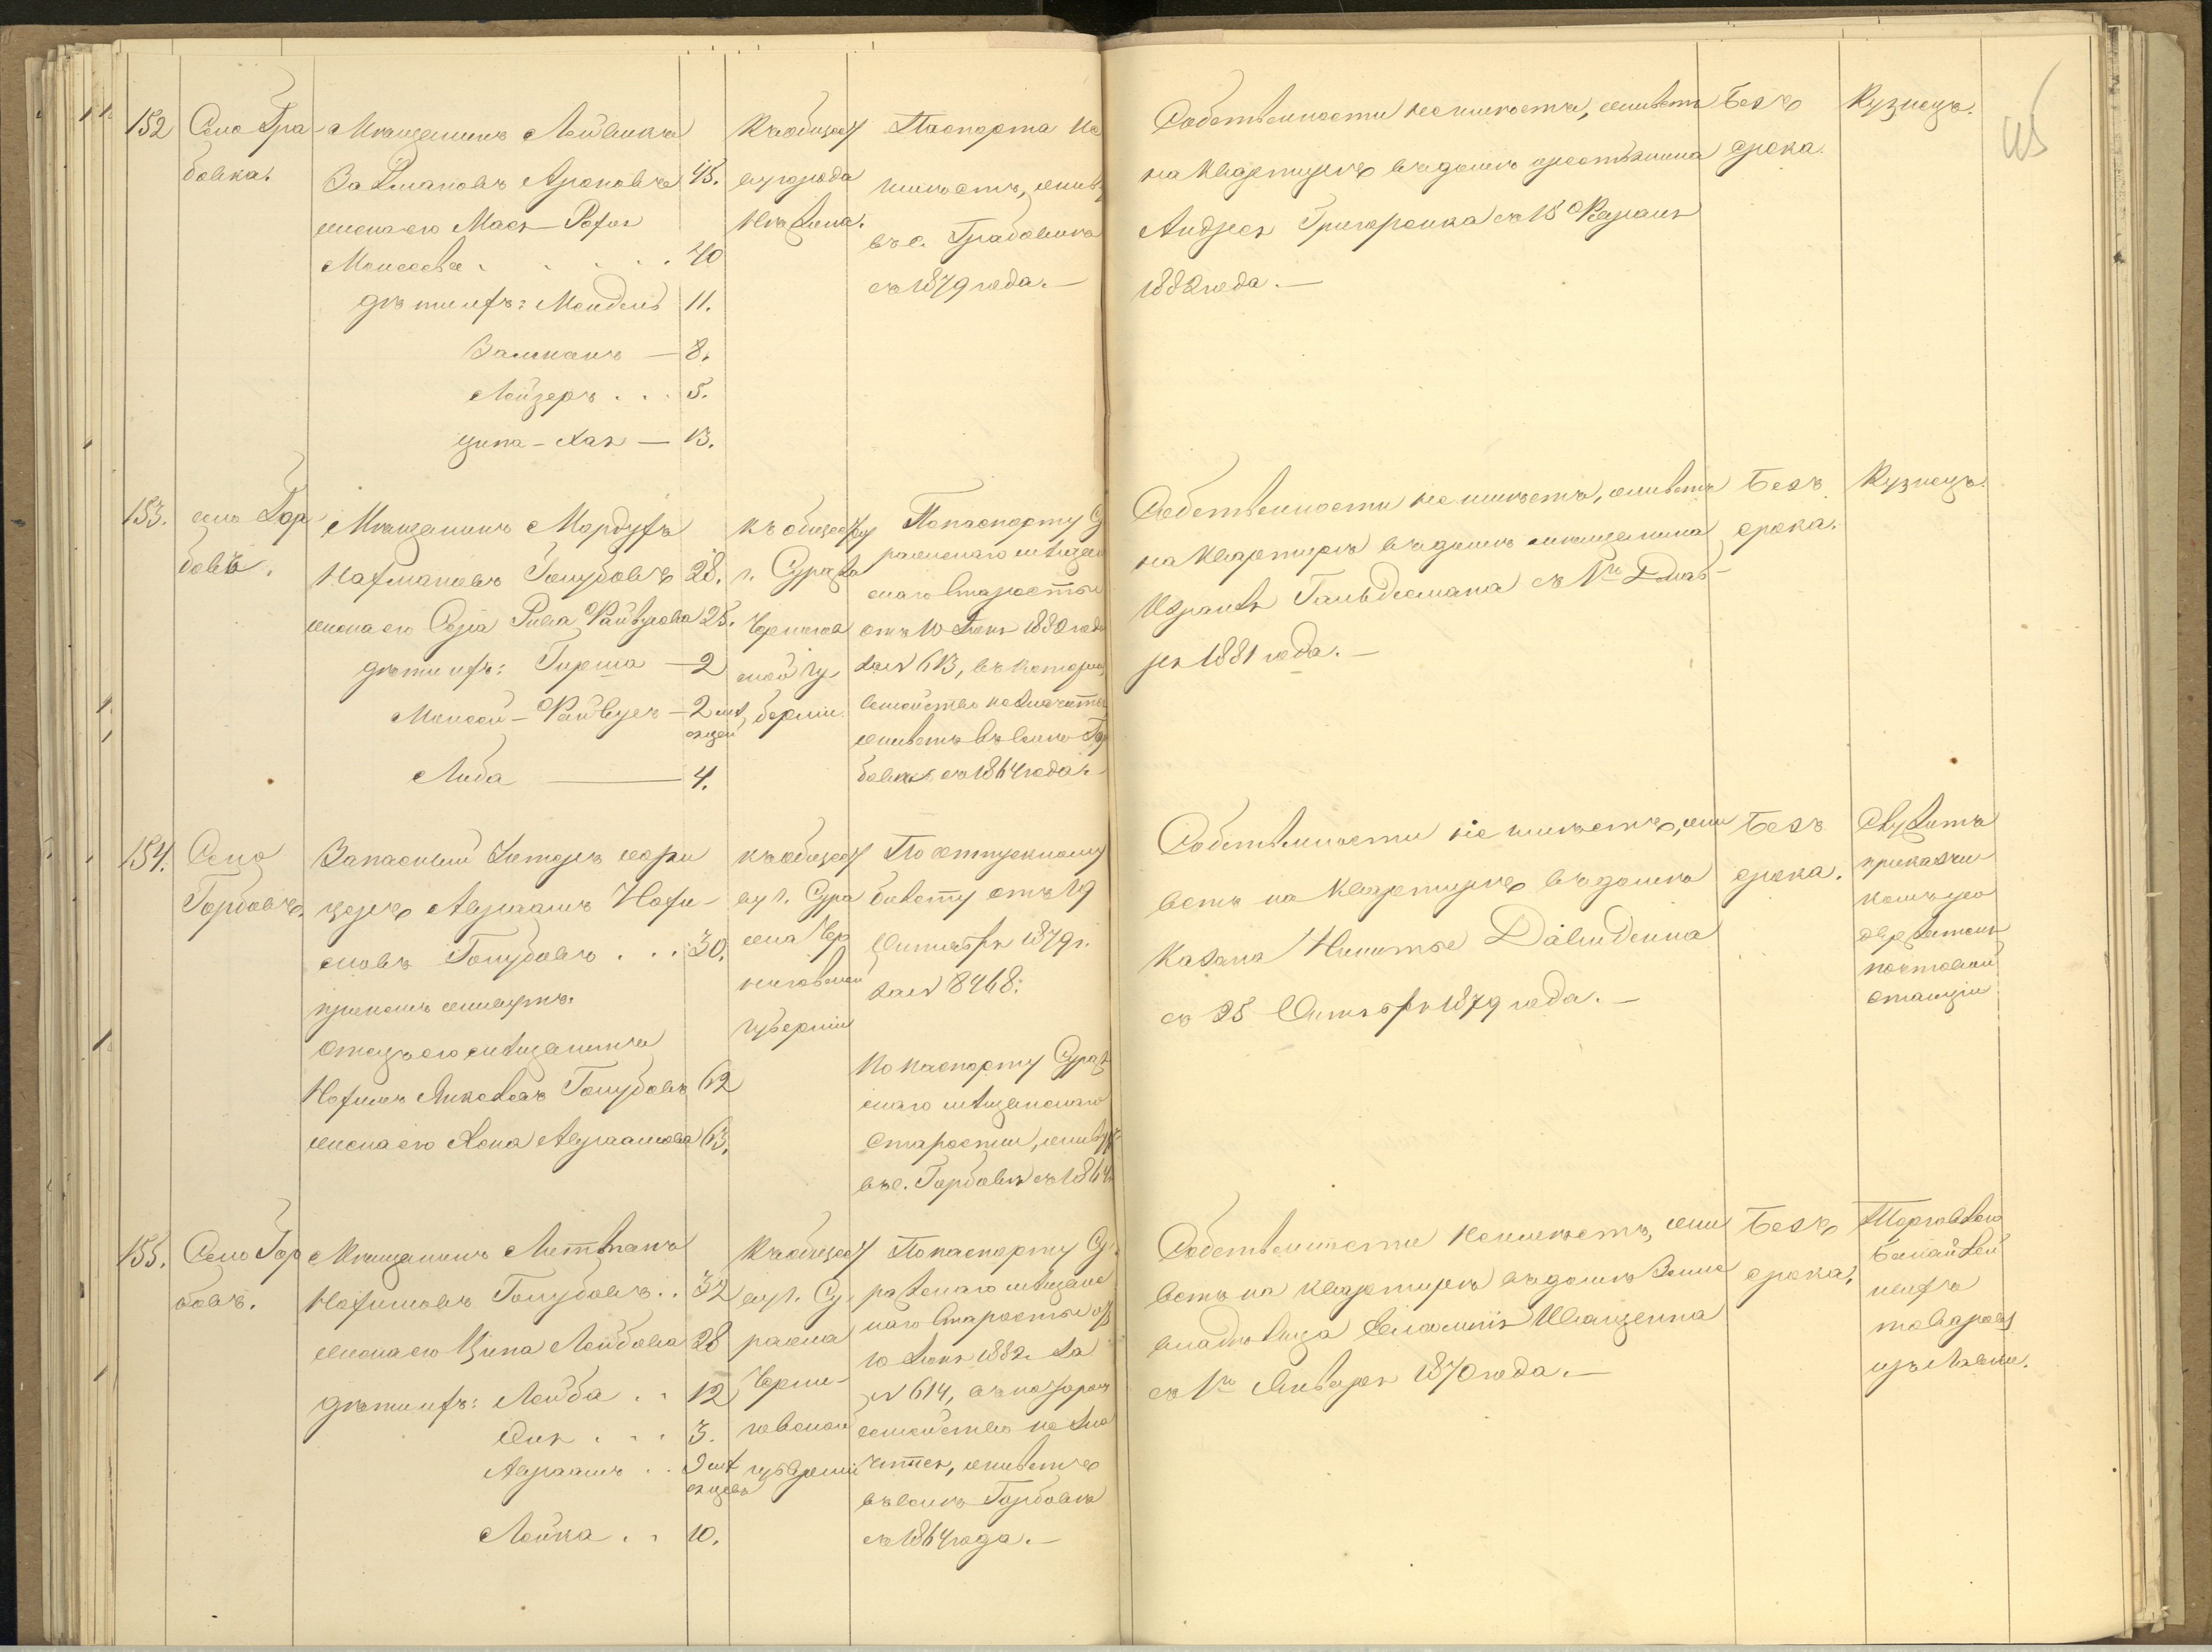 152
Село Гра
бовка.
Мѣщанинъ Лейвикъ
Залмановъ Ароновъ 45.
жена его Мася-Рохля
Моисеева . . . . 40
дѣти ихъ: Мендель 11.
Залманъ — 8.
Лейзеръ . . . 5.
Ципа-Хая — 13.
Къ обществу
города
Нѣжина.
Паспорта не
имѣетъ, живетъ
въ с. Грабовкѣ
съ 1879 года. —
Собственности не имѣетъ, живетъ
на квартирѣ въ домѣ крестьянина
Андрея Григоренка съ 15 Февраля
1882 года. —
Безъ
срока.
Кузнецъ.
115
153.
село Гор
бовъ.
Мѣщанинъ Мордухъ
Нахмановъ Голубовъ 28.
жена его Сора Рива Файвусова 25.
дѣти ихъ: Гирша — 2
Моисей-Файвусъ — 2 мѣ
сяцевъ
Либа — 4.
къ обществу
г. Суража
Чернигов
ской гу
берніи.
По паспорту Су
ражскаго мѣщан
скаго старосты
отъ 10 Іюня 1882 года
за № 613, въ которомъ
семейство не значится
живетъ въ селѣ Гор
бовѣ съ 1864 года. —
Собственности не имѣетъ, живетъ
на квартирѣ въ домѣ мѣщанина
Израиля Гальдесмана съ 1го Декаб-
ря 1881 года. —
Безъ
срока.
Кузнецъ.
154.
Село
Горбовъ.
Запасный унтеръ офи
церъ Авраамъ Нохи-
мовъ Голубовъ . . . 30.
при немъ живутъ:
отецъ его мѣщанинъ
Нохимъ Янкелевъ Голубовъ 62
жена его Хена Авраамова 63.
къ обществу
г. Сура
жа Чер
ниговской
губерніи
По отпускному
билету отъ 19
Октября 1879 г.
за № 8468.
По паспорту Сураж
скаго мѣщанскаго
старосты, живутъ
въ с. Горбовѣ съ 1864
Собственности не имѣетъ, жи
ветъ на квартирѣ въ домѣ
казака Никиты Давиденка
съ 25 Октября 1879 года. —
Безъ
срока.
Служитъ
приказчи
комъ у со
держателя
почтовой
станціи
155.
Село Гор
бовъ.
Мѣщанинъ Литманъ
Нохимовъ Голубовъ . . 32
жена его Ципа Лейбова 28
дѣти ихъ: Лейба . . 12
. . . 3.
Авраамъ . . 9 мѣ
сяцевъ
Лейка . . 10.
Къ обществу
г. Су
ража
Черни-
говской
губерніи
По паспорту Су
ражскаго мѣщанс
каго старосты отъ
10 Іюня 1882 за
№ 614, въ которомъ
семейство не зна
чится, живетъ
въ селѣ Горбовѣ
съ 1864 года. —
Собственности не имѣетъ, жи
ветъ на квартирѣ въ домѣ Земле
владѣльца Иващенка
съ 1го Января 1870 года. —
Безъ
срока.
Торговлею
бакалей
ныхъ
товаровъ
изъ лавки.